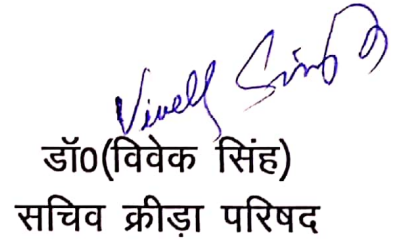 Vivek Singh
डॉ0(विवेक सिंह)
सचिव क्रीड़ा परिषद